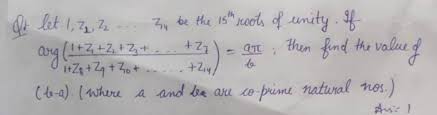 Q: let 1, Z₁, Z₂ ..... Z₁₄ be the 15ᵗʰ roots of unity. If
arg((1+Z₁+Z₂+Z₃+ ..... +Z₇)/(1+Z₈+Z₉+Z₁₀+ ..... +Z₁₄)) = aπ/b, then find the value of
(b-a). (where a and b are co-prime natural nos.)
Ans: 1